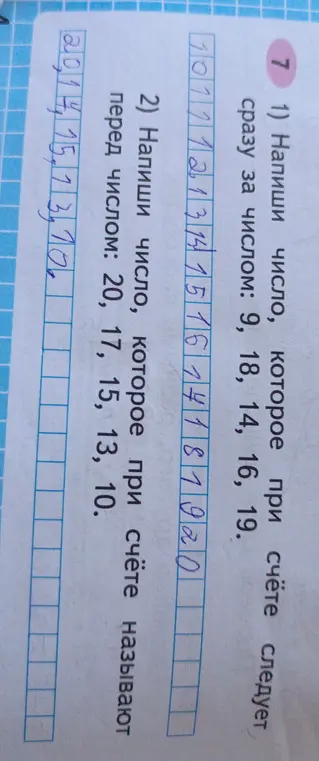 7 1) Напиши число, которое при счёте следует
сразу за числом: 9, 18, 14, 16, 19.
10 11 12, 13 14 15 16 17 18 19 20
2) Напиши число, которое при счёте называют
перед числом: 20, 17, 15, 13, 10.
20, 17, 15, 13, 10.